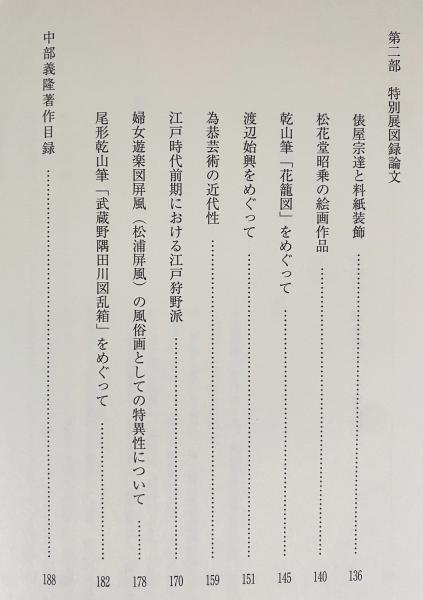 第二部　特別展図録論文
俵屋宗達と料紙装飾 136
松花堂昭乗の絵画作品 140
乾山筆「花籠図」をめぐって 145
渡辺始興をめぐって 151
為恭芸術の近代性 159
江戸時代前期における江戸狩野派 170
婦女遊楽図屏風（松浦屏風）の風俗画としての特異性について 178
尾形乾山筆「武蔵野隅田川図乱箱」をめぐって 182
中部義隆著作目録 188